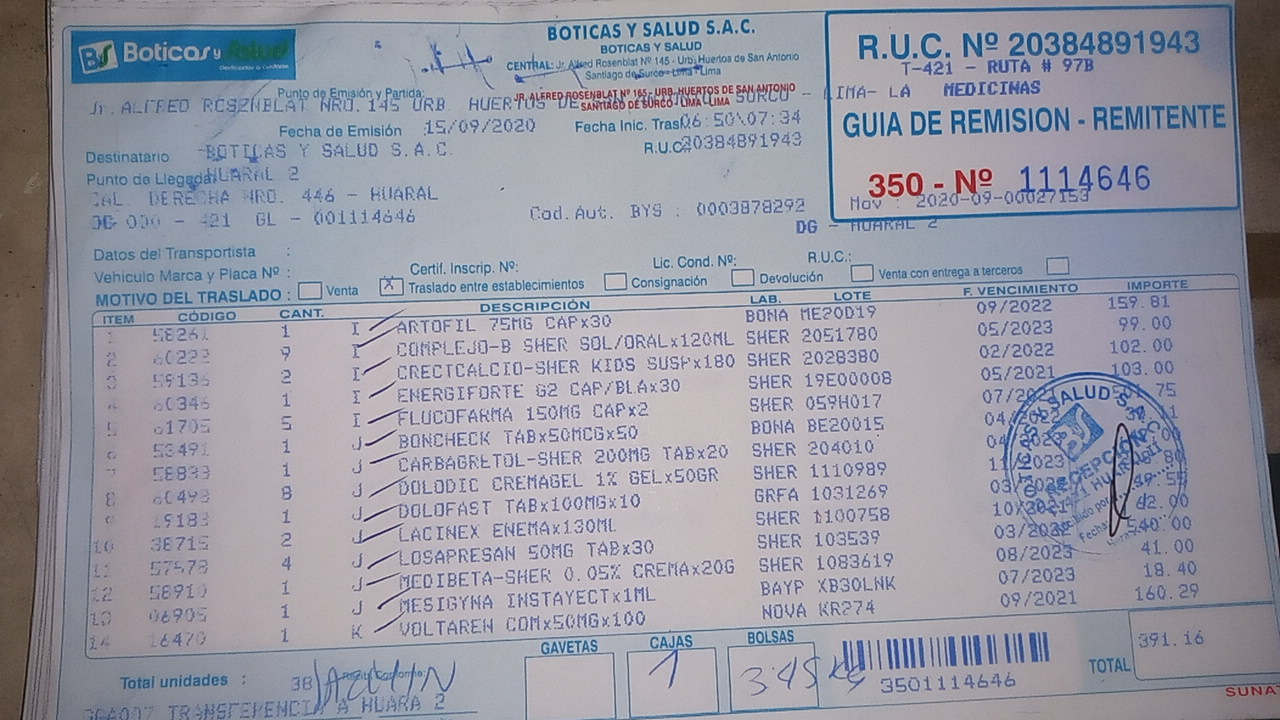 BS Boticas y Salud
BOTICAS Y SALUD S.A.C.
BOTICAS Y SALUD
CENTRAL: Jr. Alfred Rosenblat Nº 145 - Urb. Huertos de San Antonio
Santiago de Surco - Lima - Lima
R.U.C. Nº 20384891943
T-421 - RUTA # 97B
MEDICINAS
GUIA DE REMISION - REMITENTE
350 - Nº 1114646
Mov : 2020-09-00027153
DG - HUARAL 2
Punto de Emisión y Partida:
JR. ALFRED ROSENBLAT Nº 165 - URB. HUERTOS DE SAN ANTONIO
SANTIAGO DE SURCO - LIMA - LIMA
Jr. ALFRED ROSENBLAT NRO. 145 URB. HUERTOS DE SURCO - LIMA- LA
Fecha de Emisión : 15/09/2020 Fecha Inic. Tras. 06:50\07:34
Destinatario BOTICAS Y SALUD S.A.C. R.U.C. 20384891943
Punto de Llegada: HUARAL 2
CAL. DERECHA NRO. 446 - HUARAL
DG 000 - 421 GL - 001114646 Cod.Aut. BYS : 0003878292
Datos del Transportista :
Vehiculo Marca y Placa Nº : Certif. Inscrip. Nº: Lic. Cond. Nº: R.U.C.:
MOTIVO DEL TRASLADO : Venta X Traslado entre establecimientos Consignación Devolución Venta con entrega a terceros
ITEM CÓDIGO CANT. DESCRIPCIÓN LAB. LOTE F. VENCIMIENTO IMPORTE
1 58261 1 I ARTOFIL 75MG CAPx30 BONA ME20D19 09/2022 159.81
2 60222 9 I COMPLEJO-B SHER SOL/ORALx120ML SHER 2051780 05/2023 99.00
3 59136 2 I CRECTCALCIO-SHER KIDS SUSPx180 SHER 2028380 02/2022 102.00
4 60346 1 I ENERGIFORTE G2 CAP/BLAx30 SHER 19E00008 05/2021 103.00
5 61705 5 I FLUCOFARMA 150MG CAPx2 SHER 059H017 75
6 53491 1 J BONCHECK TABx50MCGx50 BONA BE20015
7 58833 1 J CARBAGRETOL-SHER 200MG TABx20 SHER 204010
8 60498 8 J DOLODIC CREMAGEL 1% GELx50GR SHER 1110989
9 19183 1 J DOLOFAST TABx100MGx10 GRFA 1031269
10 38715 2 J LACINEX ENEMAx130ML SHER 1100758 10/2021 62.00
11 57578 4 J LOSAPRESAN 50MG TABx30 SHER 103539 03/2022
12 58910 1 J MEDIBETA-SHER 0.05% CREMAx20G SHER 1083619 08/2023 41.00
13 06905 1 J MESIGYNA INSTAYECTx1ML BAYP XB30LNK 07/2023 18.40
14 16470 1 K VOLTAREN COMx50MGx100 NOVA KR274 09/2021 160.29
BOTICAS Y SALUD S.A.C.
RECEPCION
Total unidades : 38
GAVETAS CAJAS 1 BOLSAS
3501114646
TOTAL 391.16
TRANSFERENCIA A HUARA 2
SUNA